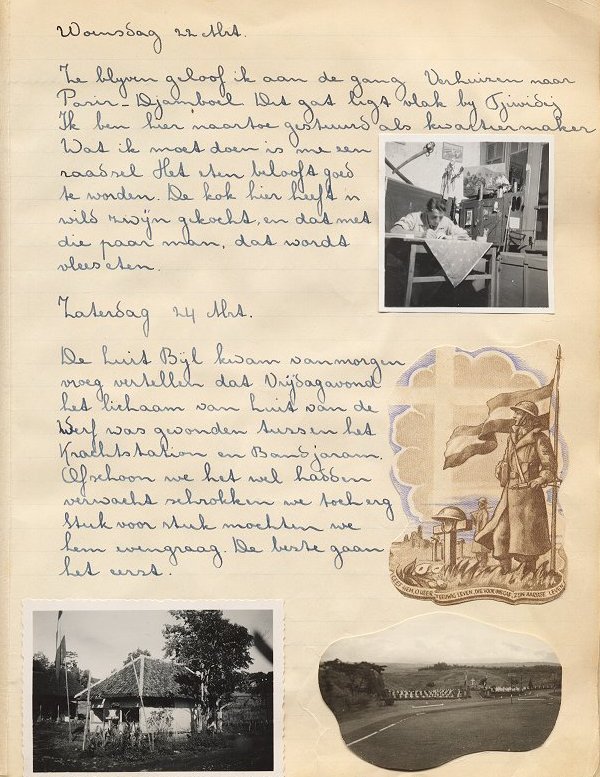 Woensdag 22 Mrt.
Ze blyven geloof ik aan de gang Verhuizen naar
Pasir-Djamboe Dit gat ligt vlak by Tjiwidij
Ik ben hier naartoe gestuurd als kwartiermaker
Wat ik moet doen is me een
raadsel Het eten belooft goed
te worden. De kok hier heeft 'n
wild zwyn gekocht, en dat met
die paar man, dat wordt
vleeseten.
Zaterdag 24 Mrt.
De luit Byl kwam vanmorgen
vroeg vertellen dat Vrijdagavond
het lichaam van luit van de
Werf was gevonden tussen het
Krachtstation en Bandjaran.
Ofschoon we het wel hadden
verwacht schrokken we toch erg
Stuk voor stuk mochten we
hem evengraag. De beste gaan
het eerst.
HEER, 'T EEUWIG LEVEN, DIE VOOR ONS GAF, ZIJN AARDSE LEVEN